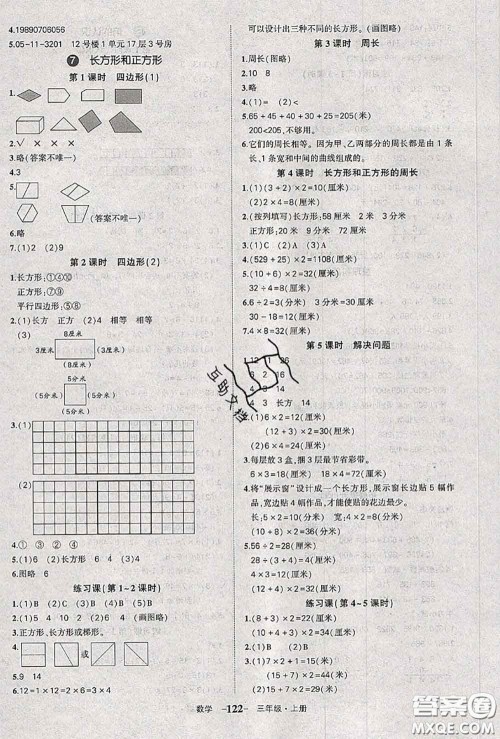 4.19890706056
5.05-11-3201 12号楼1单元17层3号房
⑦ 长方形和正方形
第1课时 四边形(1)
1.
2.√ × × × ×
3.略(答案不唯一)
4.3
5.
(答案不唯一)
6.略
7.(1)2 (2)9
第2课时 四边形(2)
1.长方形:①④⑩
正方形:⑦⑨
平行四边形:⑤⑥
2.(1)长方 正方 (2)相等 相等
(3) 8厘米
3厘米 (3厘米)
(8厘米)
(5分米)
(5分米) 5分米
(5分米)
3.(1)
(2)
4.① ③ ④ ②
5.(1)6 (2)长方形 4 4 (3)4
6.图略 6
练习课(第1~2课时)
1.(1)B (2)C (3)B
2.(1)2 (2)4 (画图略)
3.正方形、长方形或梯形。
4.
5.9 14
6.12=1×12=2×6=3×4
可以设计出三种不同的长方形。(图略)
第3课时 周长
1.周长(画图略)
2.10 8
3.略
4.(1)C (2)B
5.65+45+40+50=200(米)
200<205,不够用。
6.它们的周长相等。因为甲、乙两部分的周长都是由1长、1宽和中间的曲线组成的。
第4课时 长方形和正方形的周长
1.(1)(3+2)×2=10(厘米)
(2)2×4=8(厘米)
2.(按列填写)长方形:58厘米 2米 3米
正方形:20米 9厘米 72厘米
3.(1)C (2)A (3)A
4.(529+25)×2=1108(厘米)
5.(10+6)×2=32(厘米)
32÷4=8(厘米)
6.6÷2=3(厘米)
(6+3)×2=18(厘米)
7.4×8=32(厘米)
第5课时 解决问题
1.12 1 26
6 2 16
4 3 14
4 3 长方 14
2.(1)6×2=12(厘米)
(12+3)×2=30(厘米)
3.每层放3盒,捆3层最节省彩带。
6×3=18(厘米) 18×4=72(厘米)
4.将“展示窗”设计成一个长方形,长边贴5幅作品,宽边贴4幅作品,才能使贴的花边最少。
长:6×5=30(分米)
宽:2×4=8(分米)
(30+8)×2=76(分米)
5.56÷2=28(厘米)
(28+14)×2=84(厘米)
28÷2=14(厘米)
14×4=56(厘米)
练习课(第4~5课时)
1.(8+3)×2=22(厘米)
(8+7)×2=30(厘米)
2.(1)C (2)B (3)B
互助文档
数学 -122- 三年级·上册
答案圈
MXQE.COM